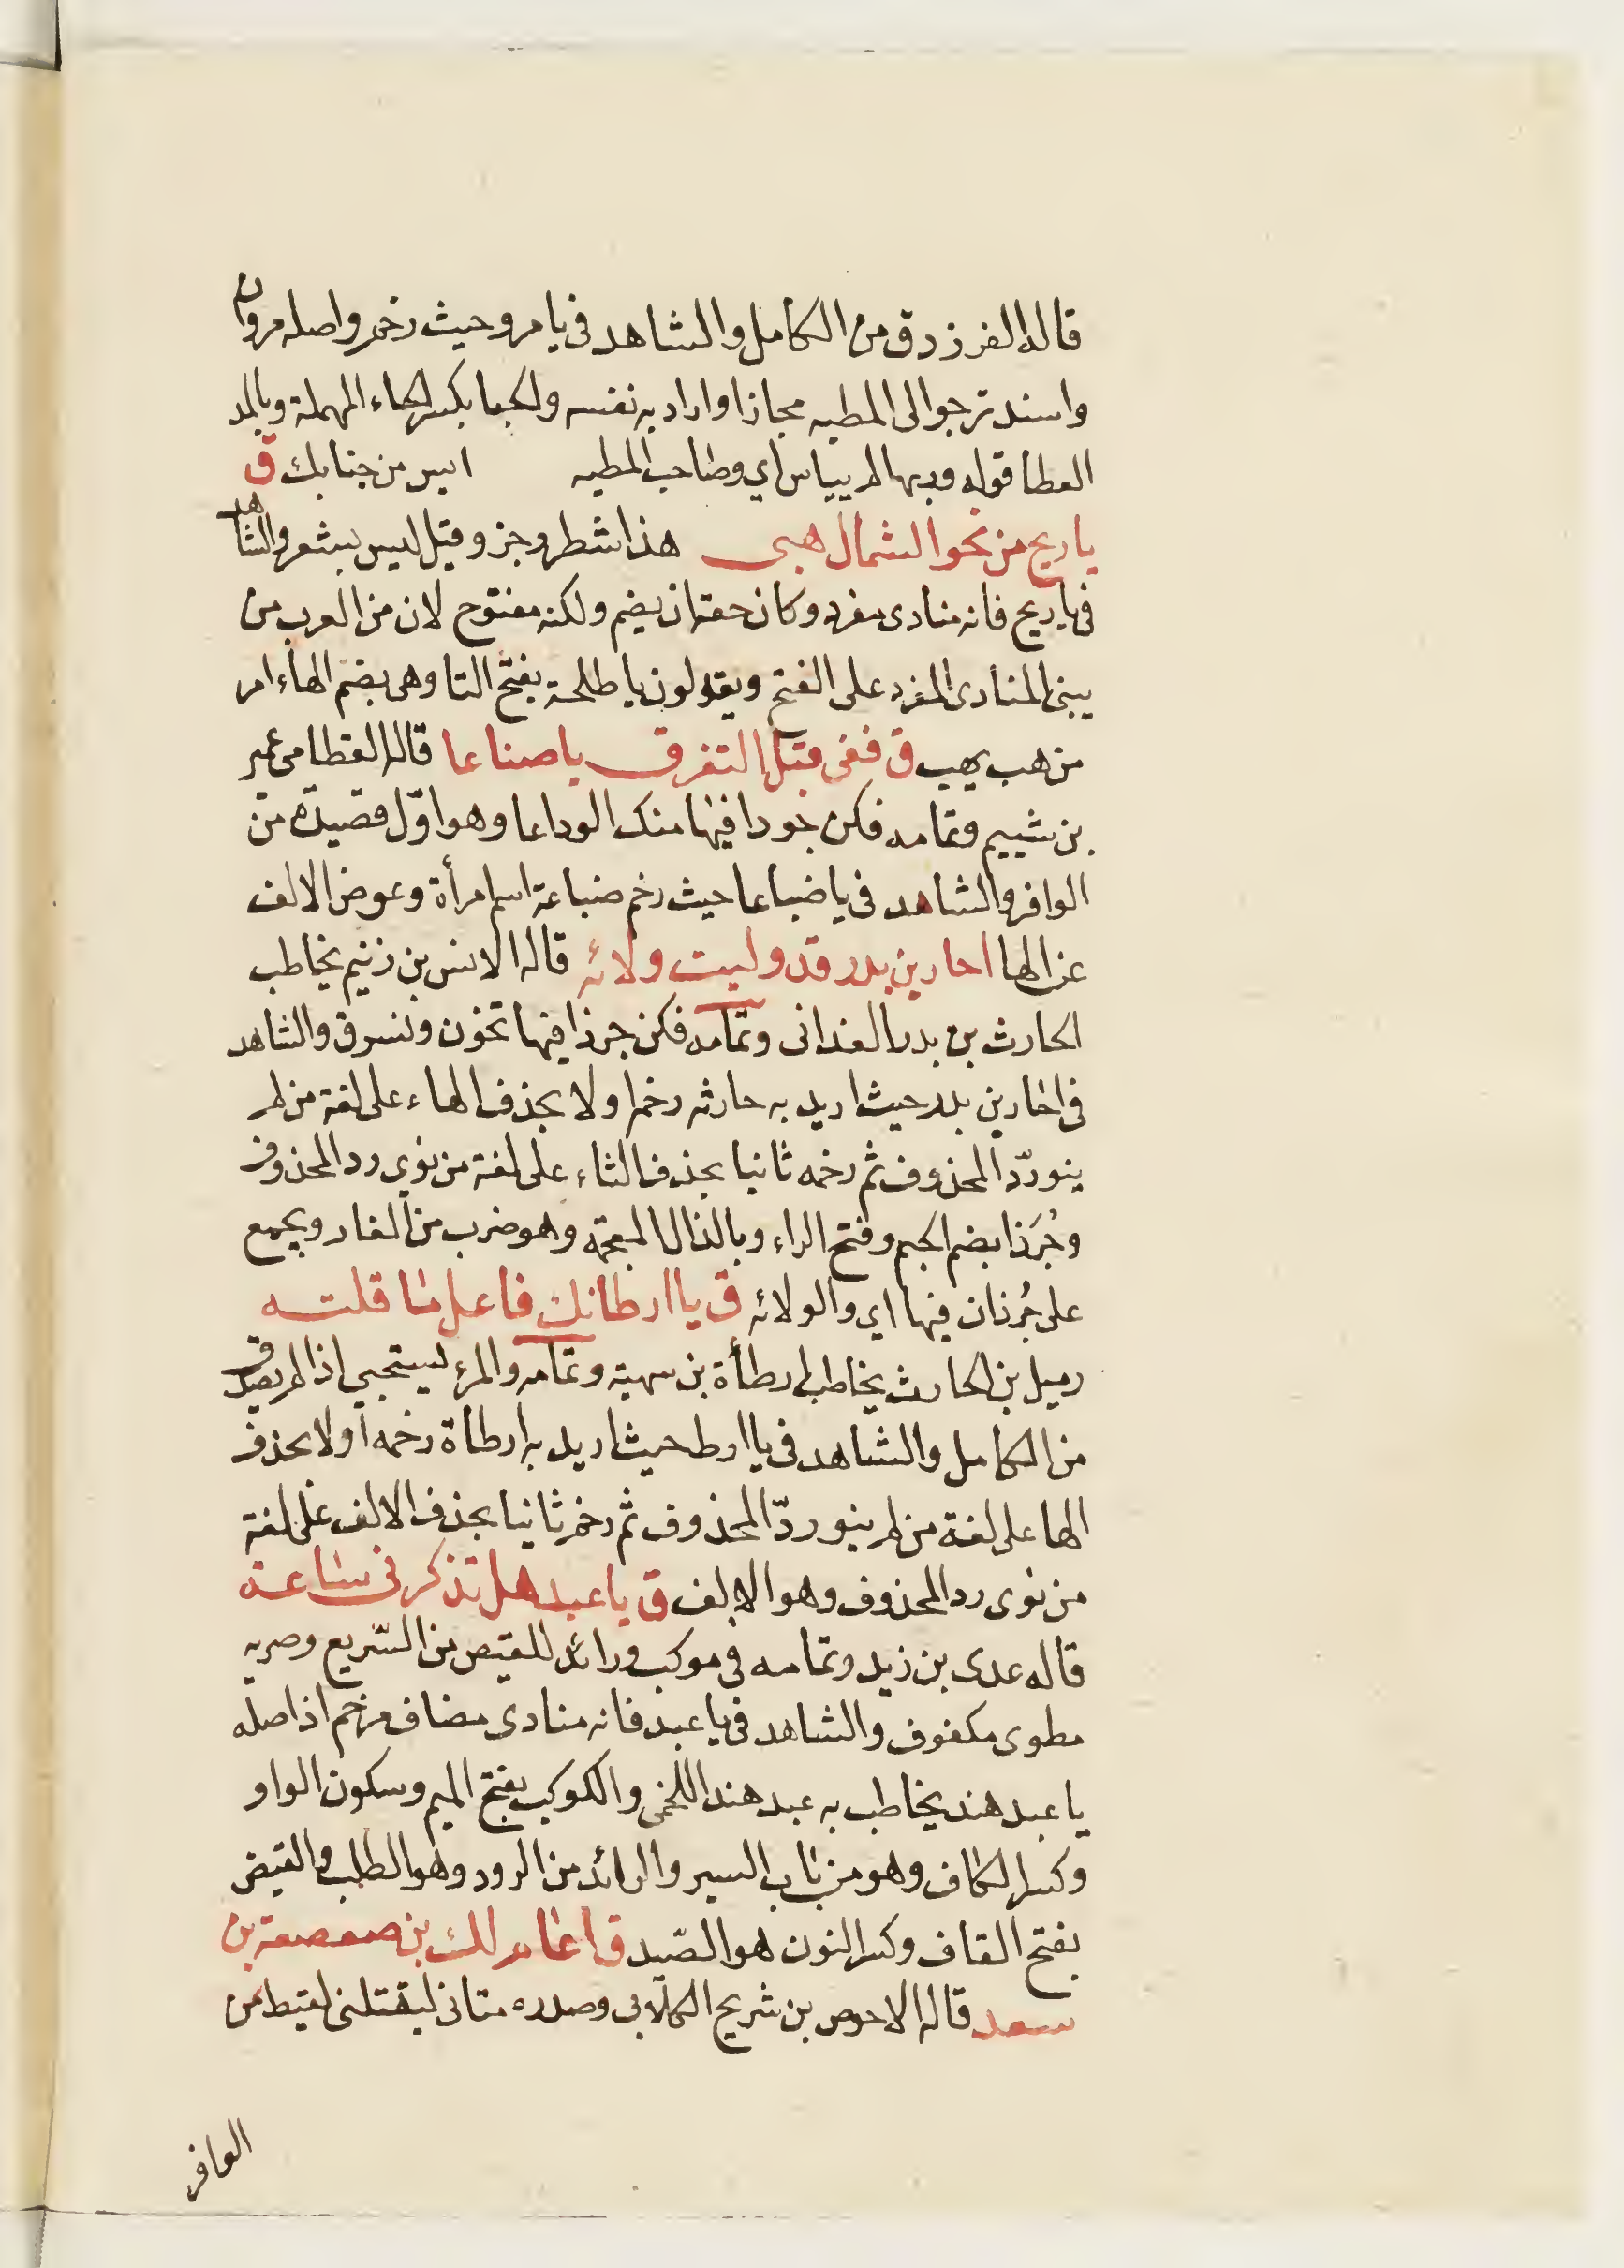 قاله الفرزدق من الكامل والشاهد في يا مرو حيث رخم واصله مروان
واسند ترجو الى المطيه مجازا واراد به نفسه والحبا بكسر الحاء المهملة وبالمد
العطا قوله وربها لم ييأس اي وصاحب المطيه ايس من جنابك ق
يا ريح من نحو الشمال هبى هذا شطر رجز وقيل ليس بشعر والشاهد
في يا ريح فانه منادى مفرد وكان حقه ان يضم ولكنه مفتوح لان من العرب من
يبنى المنادى المفرد على الفتح ويقولون يا طلحة بفتح التا وهى بضم الهاء امر
من هب يهب ق قفى قبل التفرق ياضباعا قاله القطامى عمير
بن شييم وتمامه فكن جودا فيها منك الوداعا وهو اوّل قصيدة من
الوافر والشاهد في يا ضباعا حيث رخم ضباعة اسم امرأة وعوض الالف
عن الها احار بن بدر قد وليت ولائه قاله الانس بن زنيم يخاطب
الحارث بن بدر الغدانى وتمامه فكن جرذا فيها تخون وتسرق والشاهد
في احار بن بدر حيث اريد به حارثه رخم اولا بحذف الهاء على لغة من لم
ينو ردّ المحذوف ثم رخمه ثانيا بحذف الثاء على لغة من نوى رد المحذوف
وجُرَذا بضم الجيم وفتح الراء وبالذال المعجمة وهو ضرب من الفار ويجمع
على جُرذان فيها اي والولائه ق يا ارطانك فاعل ما قلته
رميل بن الحارث يخاطب ارطأة بن سهية وتمامه والمرء ليستحيي اذا لم يصدق
من الكامل والشاهد في يا ارط حيث اريد به ارطأة رخمه اولا بحذف
الها على لغة من لم ينو ردّ المحذوف ثم رخم ثانيا بحذف الالف على لغة
من نوى رد المحذوف وهو الالف ق يا عبد هل تذكرنى ساعة
قاله عدى بن زيد وتمامه في موكب ورائد للقيص من السّريع وضربه
مطوى مكفوف والشاهد في يا عبد فانه منادى مضاف مرخم اذ اصله
يا عبد هند يخاطب به عبد هند اللخمى والكوكب بفتح الميم وسكون الواو
وكسر الكاف وهو من باب السير والرائد من الرود وهو الطلب والقيض
بفتح القاف وكسر النون هو الصّيد ق اعام لك بن صعصعة بن
سعد قاله الاحوص بن شريح الكلابى وصدره متانى ليقتلنى لقيط من
الوافر